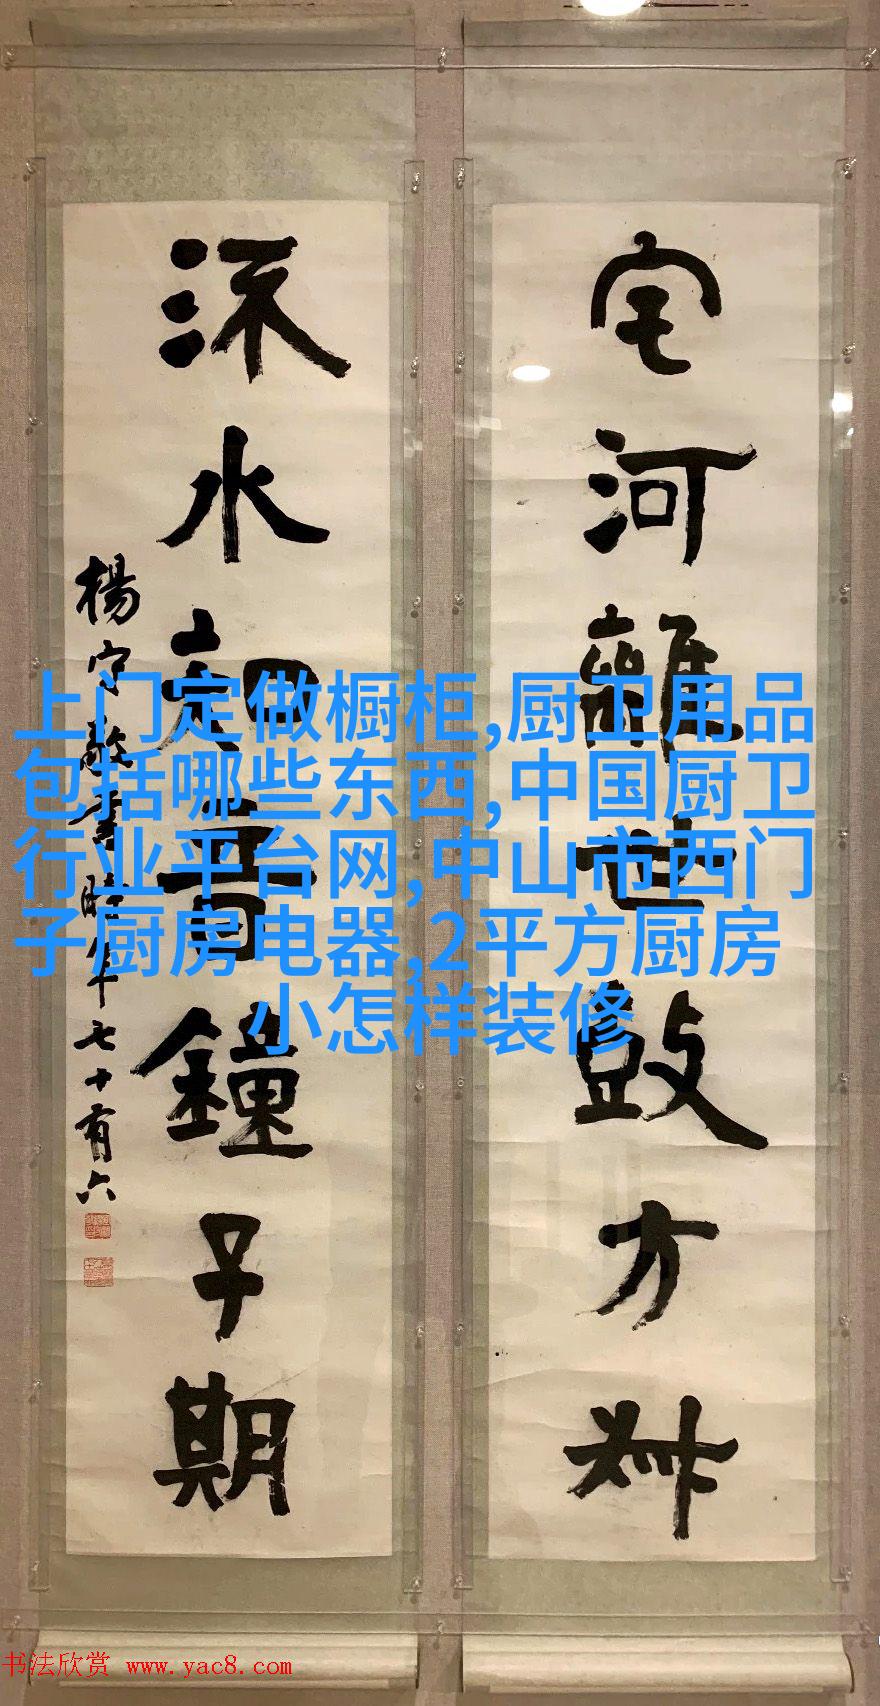 宅河離世鼓方叔
流水知音鐘子期
楊守敬書時年七十有六
上门定做橱柜,厨卫用品
包括哪些东西,中国厨卫
行业平台网,中山市西门
子厨房电器,2平方厨房
小怎样装修
书法欣赏 www.yac8.com